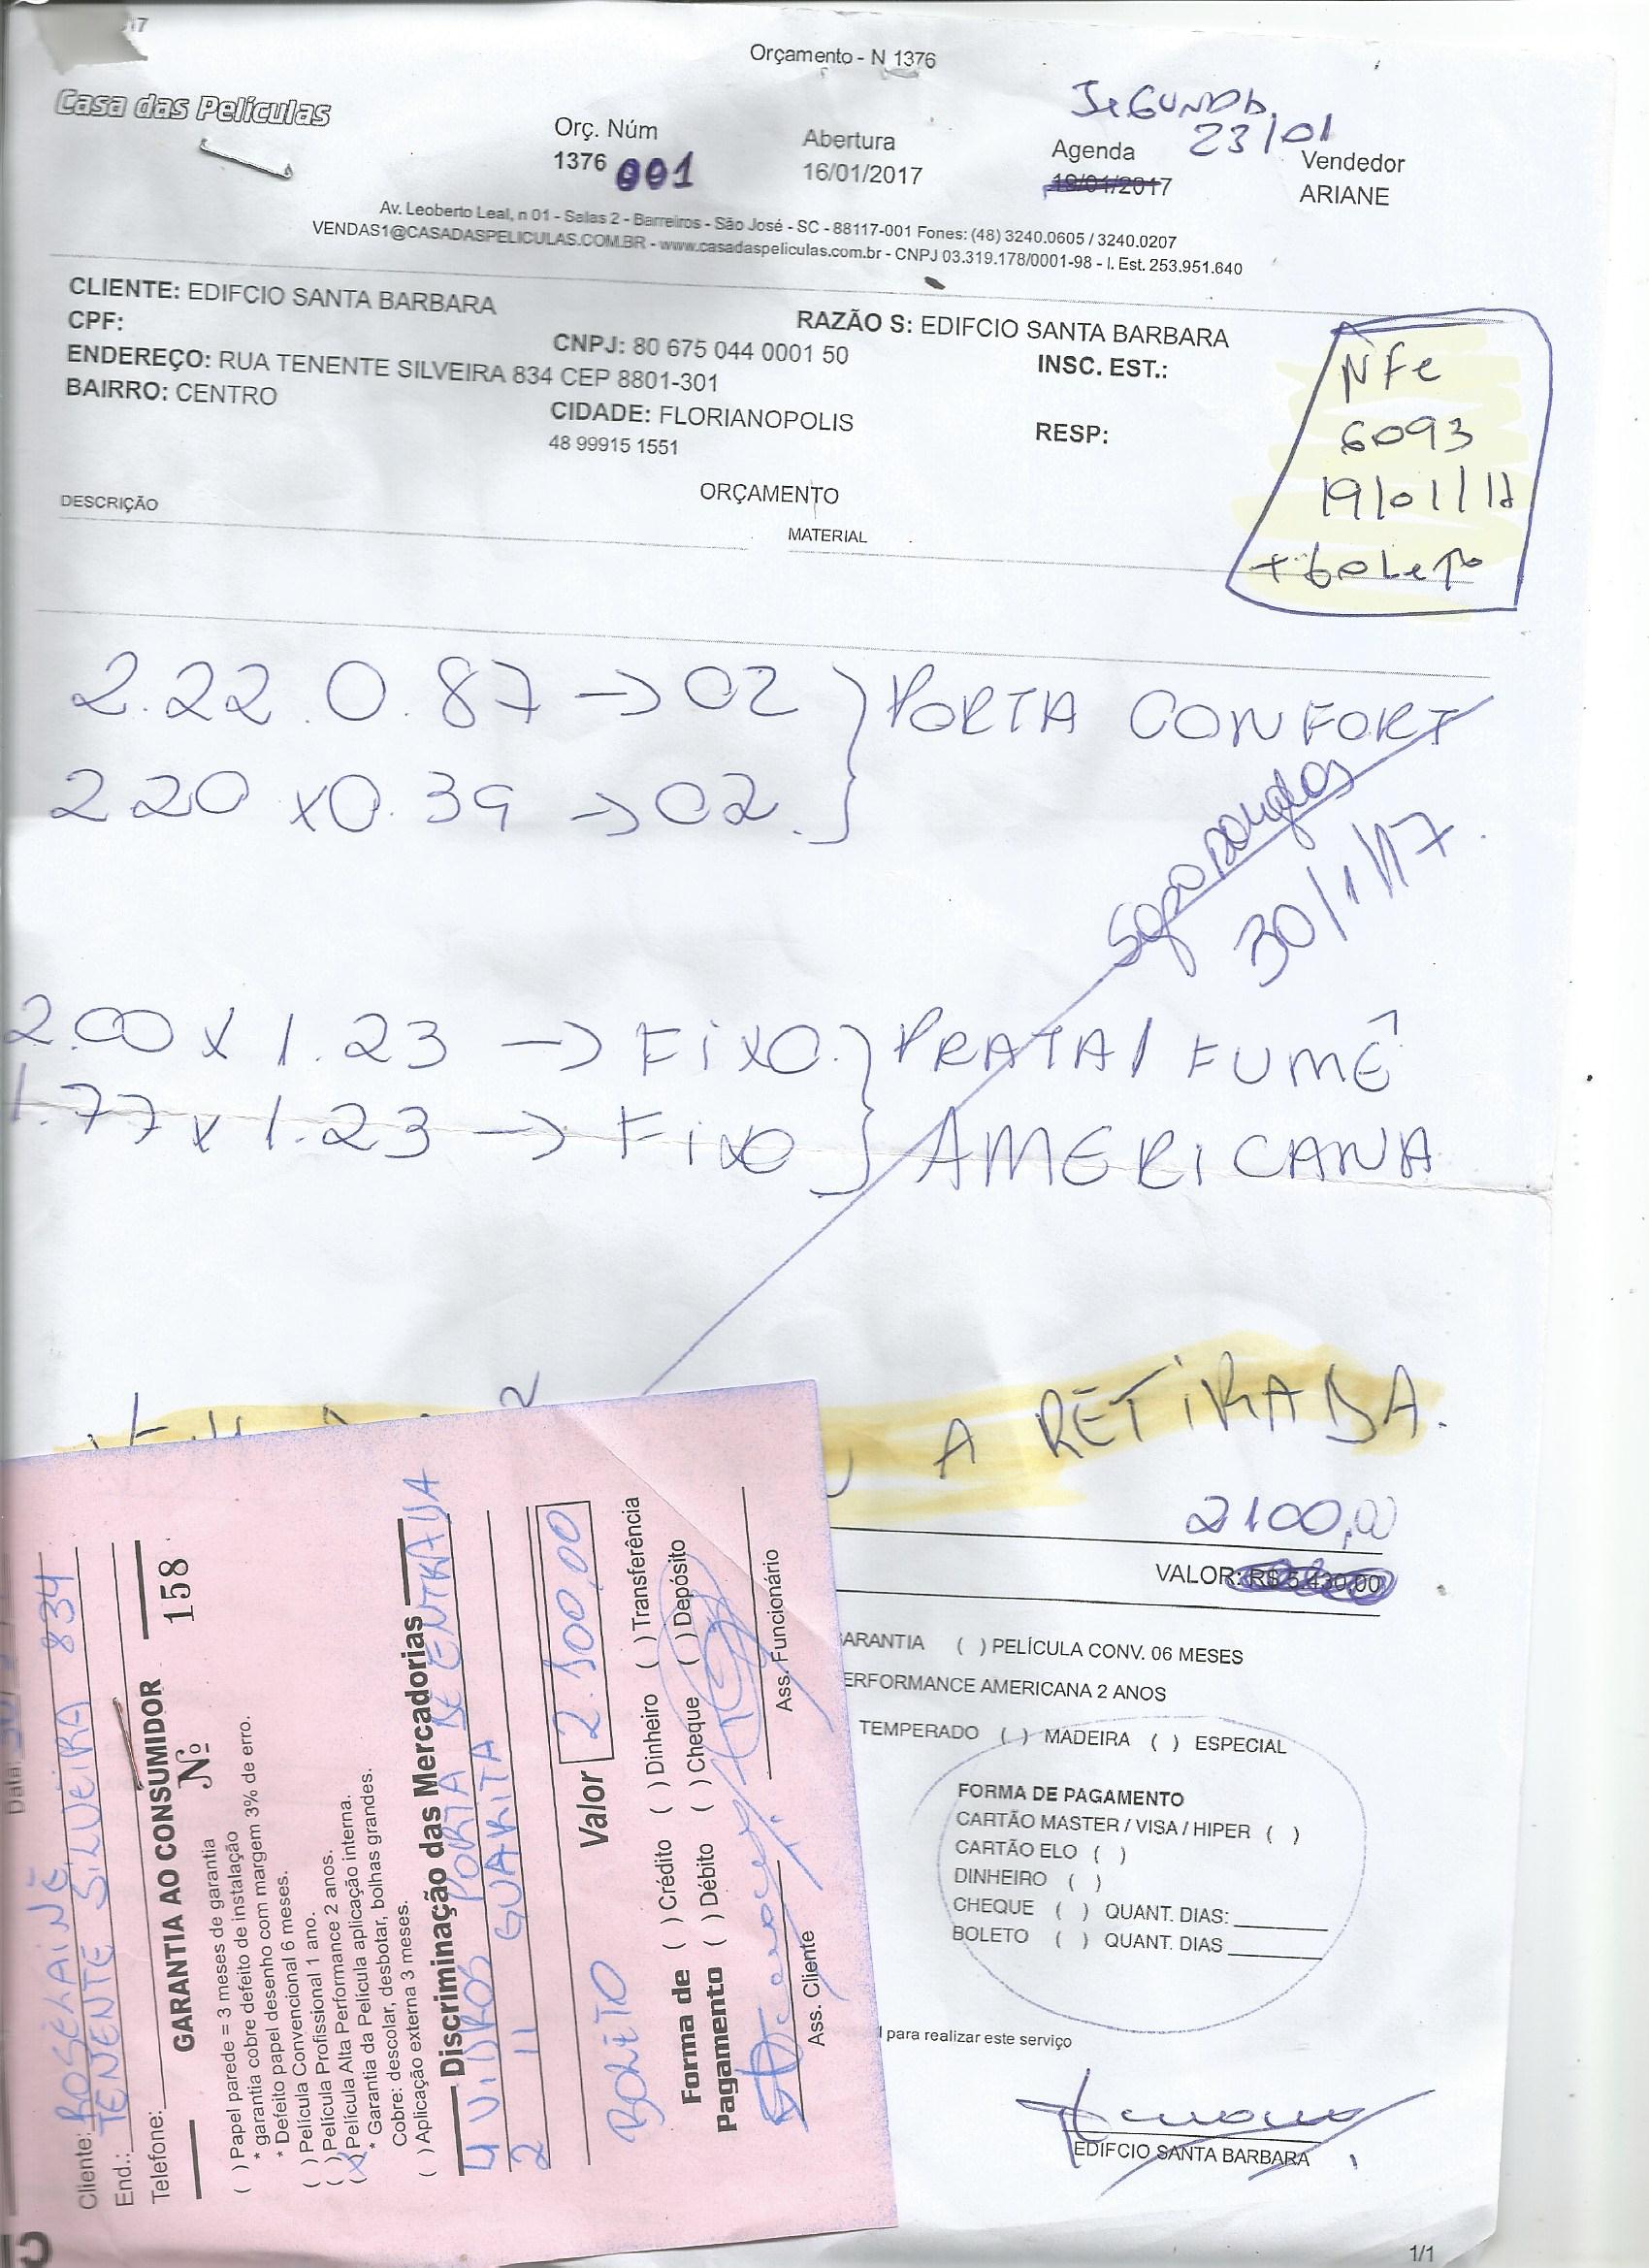 Orçamento - N 1376
Casa das Películas
Orç. Núm
1376 001
Abertura
16/01/2017
SEGUNDA
23/01
Agenda
19/01/2017
Vendedor
ARIANE
Av. Leoberto Leal, n 01 - Salas 2 - Barreiros - São José - SC - 88117-001 Fones: (48) 3240.0605 / 3240.0207
VENDAS1@CASADASPELICULAS.COM.BR - www.casadaspeliculas.com.br - CNPJ 03.319.178/0001-98 - I. Est. 253.951.640
CLIENTE: EDIFCIO SANTA BARBARA
RAZÃO S: EDIFCIO SANTA BARBARA
CPF:
CNPJ: 80 675 044 0001 50
INSC. EST.:
ENDEREÇO: RUA TENENTE SILVEIRA 834 CEP 8801-301
BAIRRO: CENTRO
CIDADE: FLORIANOPOLIS
RESP:
48 99915 1551
NFe
6093
19/01/17
+ boleto
ORÇAMENTO
DESCRIÇÃO
MATERIAL
2.22 0.87 → 02
2.20 x 0.39 → 02
PORTA CONFORT
30/1/17
2.00 x 1.23 → FIXO
1.77 x 1.23 → FIXO
PRATA/ FUMÊ
AMERICANA
A RETIRADA.
2100,00
VALOR: R$ 5.430,00
ARANTIA ( ) PELÍCULA CONV. 06 MESES
ERFORMANCE AMERICANA 2 ANOS
TEMPERADO ( ) MADEIRA ( ) ESPECIAL
FORMA DE PAGAMENTO
CARTÃO MASTER / VISA / HIPER ( )
CARTÃO ELO ( )
DINHEIRO ( )
CHEQUE ( ) QUANT. DIAS:
BOLETO ( ) QUANT. DIAS
l para realizar este serviço
EDIFCIO SANTA BARBARA
1/1
Data:
Cliente: ROSELAINE
End.: TENENTE SILVEIRA 834
Telefone:
GARANTIA AO CONSUMIDOR
Nº 158
( ) Papel parede = 3 meses de garantia
* garantia cobre defeito de instalação
* Defeito papel desenho com margem 3% de erro.
( ) Película Convencional 6 meses.
( ) Película Profissional 1 ano.
( ) Película Alta Performance 2 anos.
(X) Película aplicação interna.
* Garantia da Película
Cobre: descolar, desbotar, bolhas grandes.
( ) Aplicação externa 3 meses.
Discriminação das Mercadorias
4 VIDROS PORTA DE ENTRADA
2 11 GUARITA
Valor 2.100,00
BOLETO
Forma de Pagamento
( ) Crédito ( ) Dinheiro ( ) Transferência
( ) Débito ( ) Cheque ( ) Depósito
Ass. Cliente
Ass. Funcionário